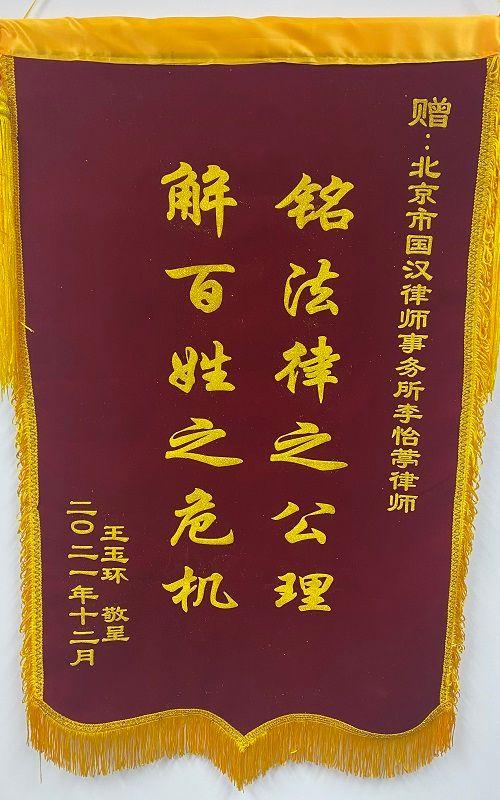 赠：北京市国汉律师事务所李怡葶律师
铭法律之公理
解百姓之危机
王玉环 敬呈
二〇二一年十二月